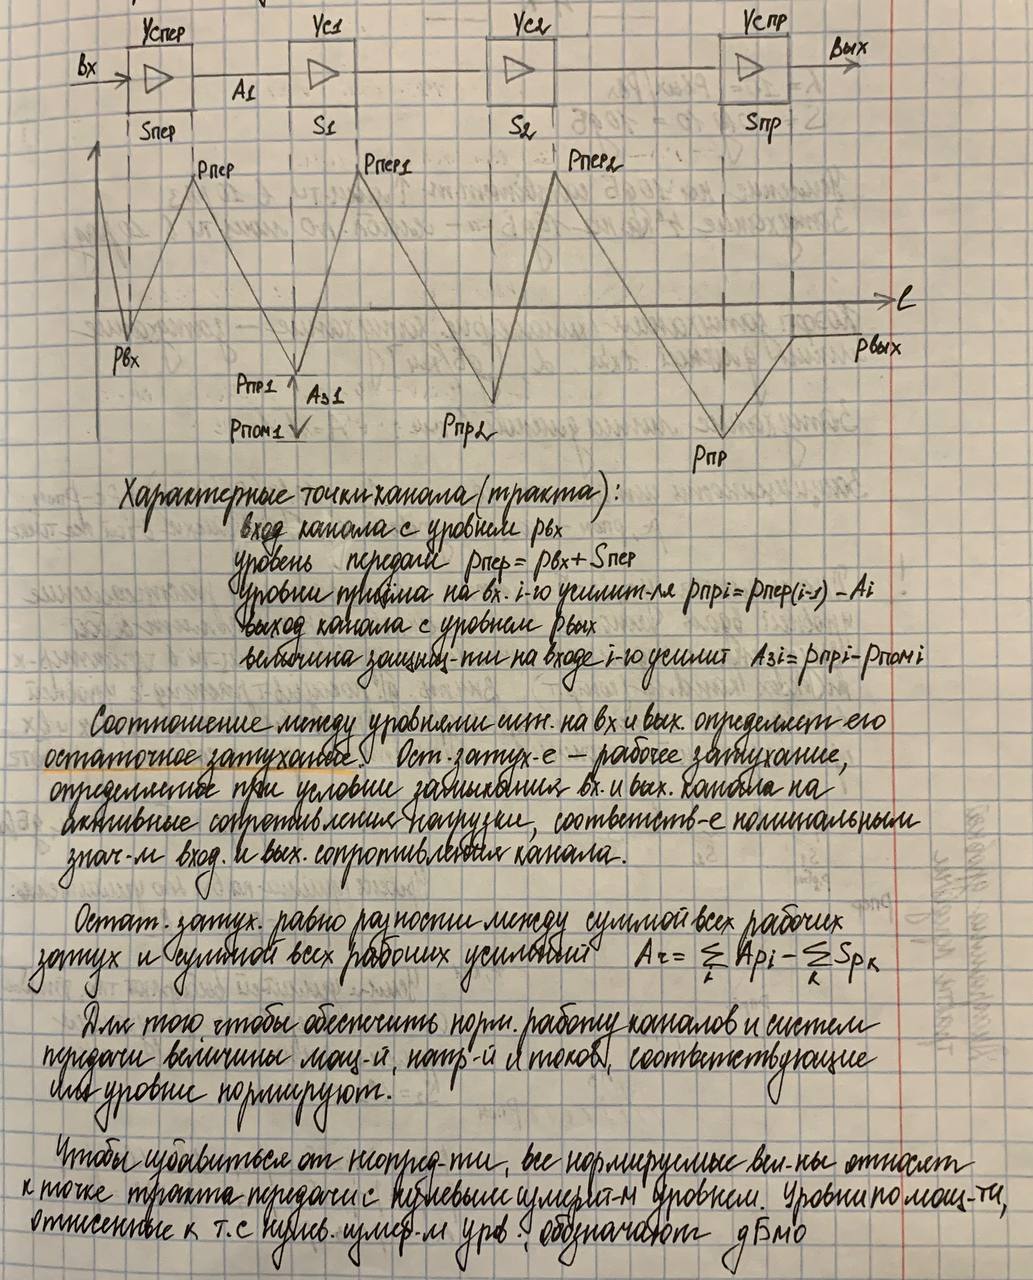 Успер Ус1 Ус2 Успр
Вх Вых
А1
Sпер S1 S2 Sпр
Рпер Рпер1 Рпер2
ℓ
Рвх Рвых
Рпр1 Аз1
Рпом1 Рпр2
Рпр
Характерные точки канала (тракта):
вход канала с уровнем рвх
уровень передачи рпер = рвх + Sпер
уровни приёма на вх. i-го усилит-ля рпрi = рпер(i-1) - Ai
выход канала с уровнем рвых
величина защищ-ти на входе i-го усилит Азi = рпрi - рпомi
Соотношение между уровнями на вх и вых. определяет его
остаточное затухание. Ост. затух-е – рабочее затухание,
определяемое при условии замыкания вх. и вых. канала на
активные сопротивления нагрузки, соответств-е номинальным
знач-м вход. и вых. сопротивления канала.
Остат. затух. равно разности между суммой всех рабочих
затух и суммой всех рабочих усилений Аr = ∑i Арi - ∑k Sрk
Для того чтобы обеспечить норм. работу каналов и систем
передачи величины мощ-й, напр-й и токов, соответствующие
им уровни нормируют.
Чтобы избавиться от неопред-ти, все нормируемые вел-ны относят
к точке тракта передачи с нулевым измерит-м уровнем. Уровни по мощ-ти,
отнесенные к т. с нулев. измер-м уров., обозначают дБм0